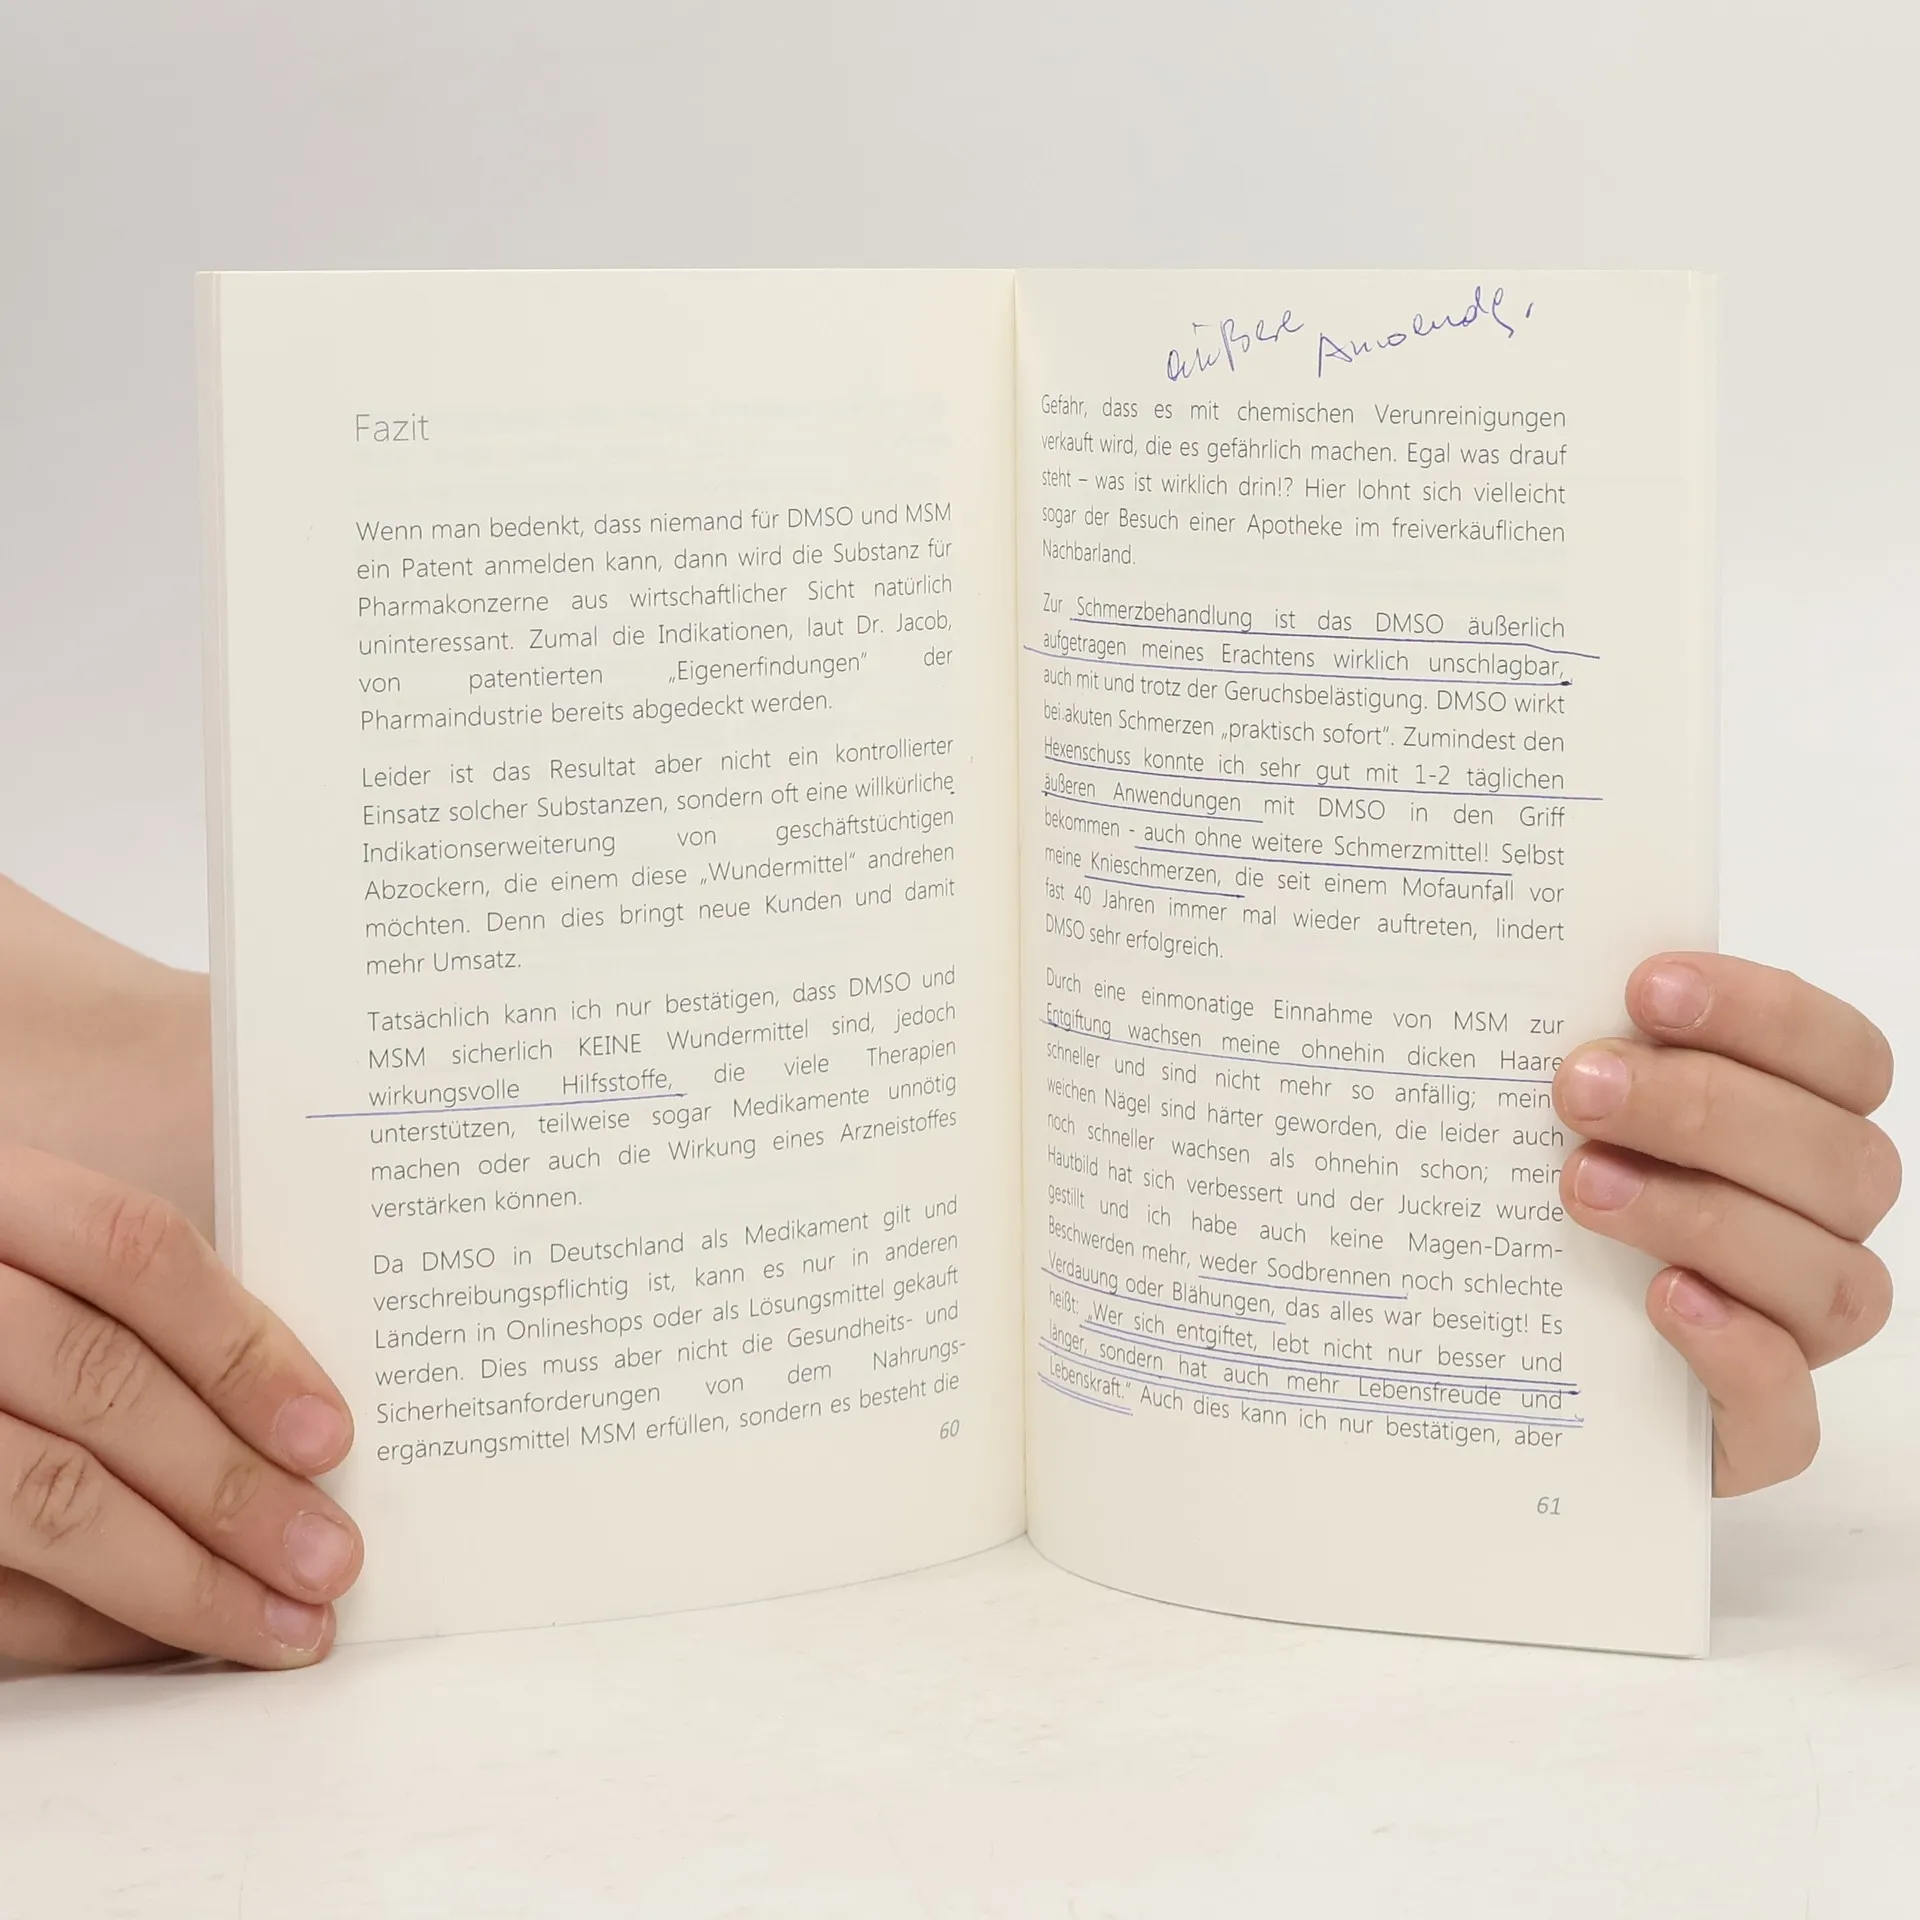 Fazit
Wenn man bedenkt, dass niemand für DMSO und MSM
ein Patent anmelden kann, dann wird die Substanz für
Pharmakonzerne aus wirtschaftlicher Sicht natürlich
uninteressant. Zumal die Indikationen, laut Dr. Jacob,
von patentierten „Eigenerfindungen“ der
Pharmaindustrie bereits abgedeckt werden.
Leider ist das Resultat aber nicht ein kontrollierter
Einsatz solcher Substanzen, sondern oft eine willkürliche
Indikationserweiterung von geschäftstüchtigen
Abzockern, die einem diese „Wundermittel“ andrehen
möchten. Denn dies bringt neue Kunden und damit
mehr Umsatz.
Tatsächlich kann ich nur bestätigen, dass DMSO und
MSM sicherlich KEINE Wundermittel sind, jedoch
wirkungsvolle Hilfsstoffe, die viele Therapien
unterstützen, teilweise sogar Medikamente unnötig
machen oder auch die Wirkung eines Arzneistoffes
verstärken können.
Da DMSO in Deutschland als Medikament gilt und
verschreibungspflichtig ist, kann es nur in anderen
Ländern in Onlineshops oder als Lösungsmittel gekauft
werden. Dies muss aber nicht die Gesundheits- und
Sicherheitsanforderungen von dem Nahrungs-
ergänzungsmittel MSM erfüllen, sondern es besteht die
60
äußere Anwendg.
Gefahr, dass es mit chemischen Verunreinigungen
verkauft wird, die es gefährlich machen. Egal was drauf
steht – was ist wirklich drin!? Hier lohnt sich vielleicht
sogar der Besuch einer Apotheke im freiverkäuflichen
Nachbarland.
Zur Schmerzbehandlung ist das DMSO äußerlich
aufgetragen meines Erachtens wirklich unschlagbar,
auch mit und trotz der Geruchsbelästigung. DMSO wirkt
bei akuten Schmerzen „praktisch sofort“. Zumindest den
Hexenschuss konnte ich sehr gut mit 1-2 täglichen
äußeren Anwendungen mit DMSO in den Griff
bekommen - auch ohne weitere Schmerzmittel! Selbst
meine Knieschmerzen, die seit einem Mofaunfall vor
fast 40 Jahren immer mal wieder auftreten, lindert
DMSO sehr erfolgreich.
Durch eine einmonatige Einnahme von MSM zur
Entgiftung wachsen meine ohnehin dicken Haare
schneller und sind nicht mehr so anfällig; mein
weichen Nägel sind härter geworden, die leider auch
noch schneller wachsen als ohnehin schon; mein
Hautbild hat sich verbessert und der Juckreiz wurde
gestillt und ich habe auch keine Magen-Darm-
Beschwerden mehr, weder Sodbrennen noch schlechte
Verdauung oder Blähungen, das alles war beseitigt! Es
heißt: „Wer sich entgiftet, lebt nicht nur besser und
länger, sondern hat auch mehr Lebensfreude und
Lebenskraft.“ Auch dies kann ich nur bestätigen, aber
61